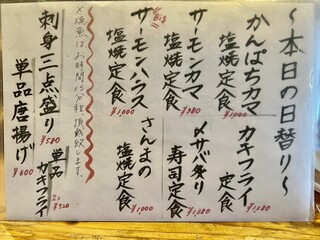 ～本日の日替り～
かんぱちカマ
塩焼定食
¥1,000
カキフライ
定食
¥1,280
サーモンカマ
塩焼定食
¥980
〆サバ炙り
寿司定食
¥1,280
サーモンハラス
塩焼定食
¥1,000
さんまの
塩焼定食
¥1,000
※焼魚はお時間15分程頂戴致します。
刺身三点盛り
¥580
単品カキフライ
2コ
¥520
単品唐揚げ
¥600